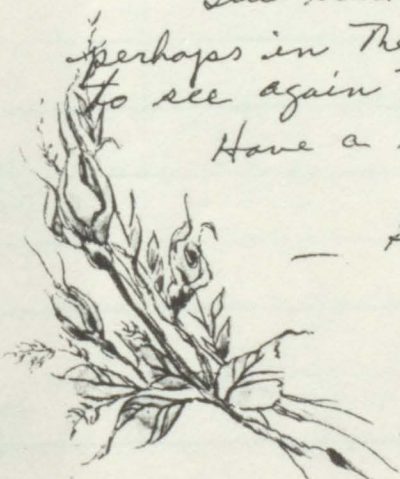 perhaps in The
to see again
Have a
—